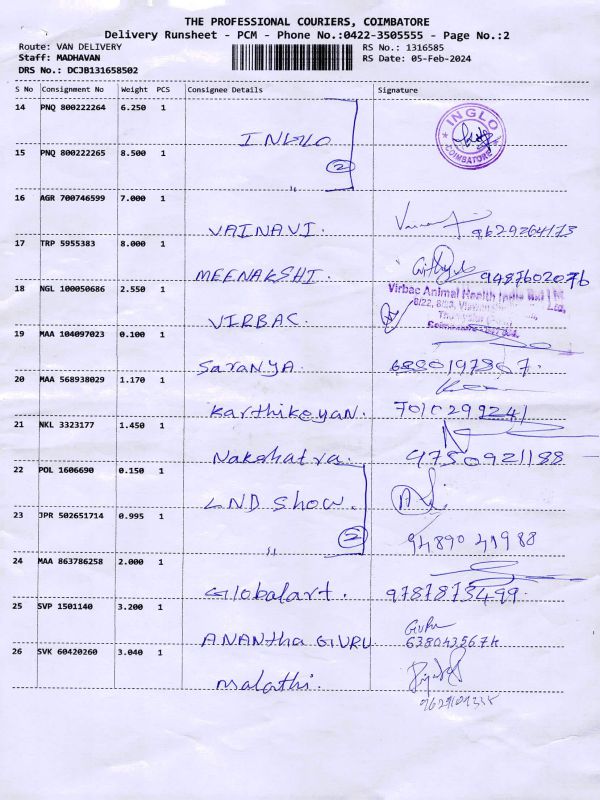 THE PROFESSIONAL COURIERS, COIMBATORE
Delivery Runsheet - PCM - Phone No.:0422-3505555 - Page No.:2
Route: VAN DELIVERY
Staff: MADHAVAN
DRS No.: DCJB131658502
RS No.: 1316585
RS Date: 05-Feb-2024
S No Consignment No Weight PCS Consignee Details Signature
14 PNQ 800222264 6.250 1 INGLO
INGLO COIMBATORE
15 PNQ 800222265 8.500 1 〃 2
16 AGR 700746599 7.000 1 VAINAVI. 9629264173
17 TRP 5955383 8.000 1 MEENAKSHI. 9487602076
18 NGL 100050686 2.550 1 VIRBAC.
Virbac Animal Health India
19 MAA 104097023 0.100 1 Saranya.
20 MAA 568938029 1.170 1 Karthikeyan. 7010299241
21 NKL 3323177 1.450 1 Nakshatra. 9750921188
22 POL 1606690 0.150 1 LND Show.
23 JPR 502651714 0.995 1 〃 2 9489041988
24 MAA 863786258 2.000 1 Globalart. 9787873499
25 SVP 1501140 3.200 1 ANANTHA GIURU Guru
26 SVK 60420260 3.040 1 Malathi.